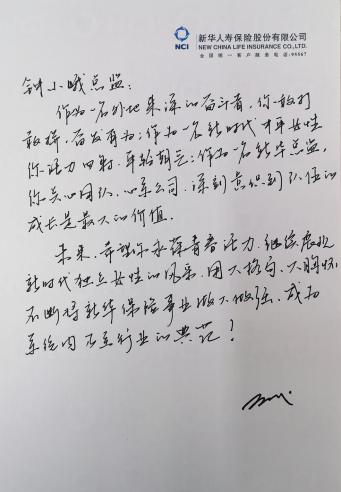 NCI
新华人寿保险股份有限公司
NEW CHINA LIFE INSURANCE CO.,LTD.
全国统一客户服务电话:95567
钟小娥总监:
作为一名外地来深的奋斗者,你敢打
敢拼,奋发有为;作为一名新时代才年女性
你活力四射,年轻朝气;作为一名新华总监,
你关心团队、心系公司,深刻意识到队伍的
成长是最大的价值。
未来,希望你永葆青春活力,继续展现
新时代独立女性的风采,用大格局、大胸怀
不断将新华保险事业做大做强,成为
系统内乃至行业的典范!